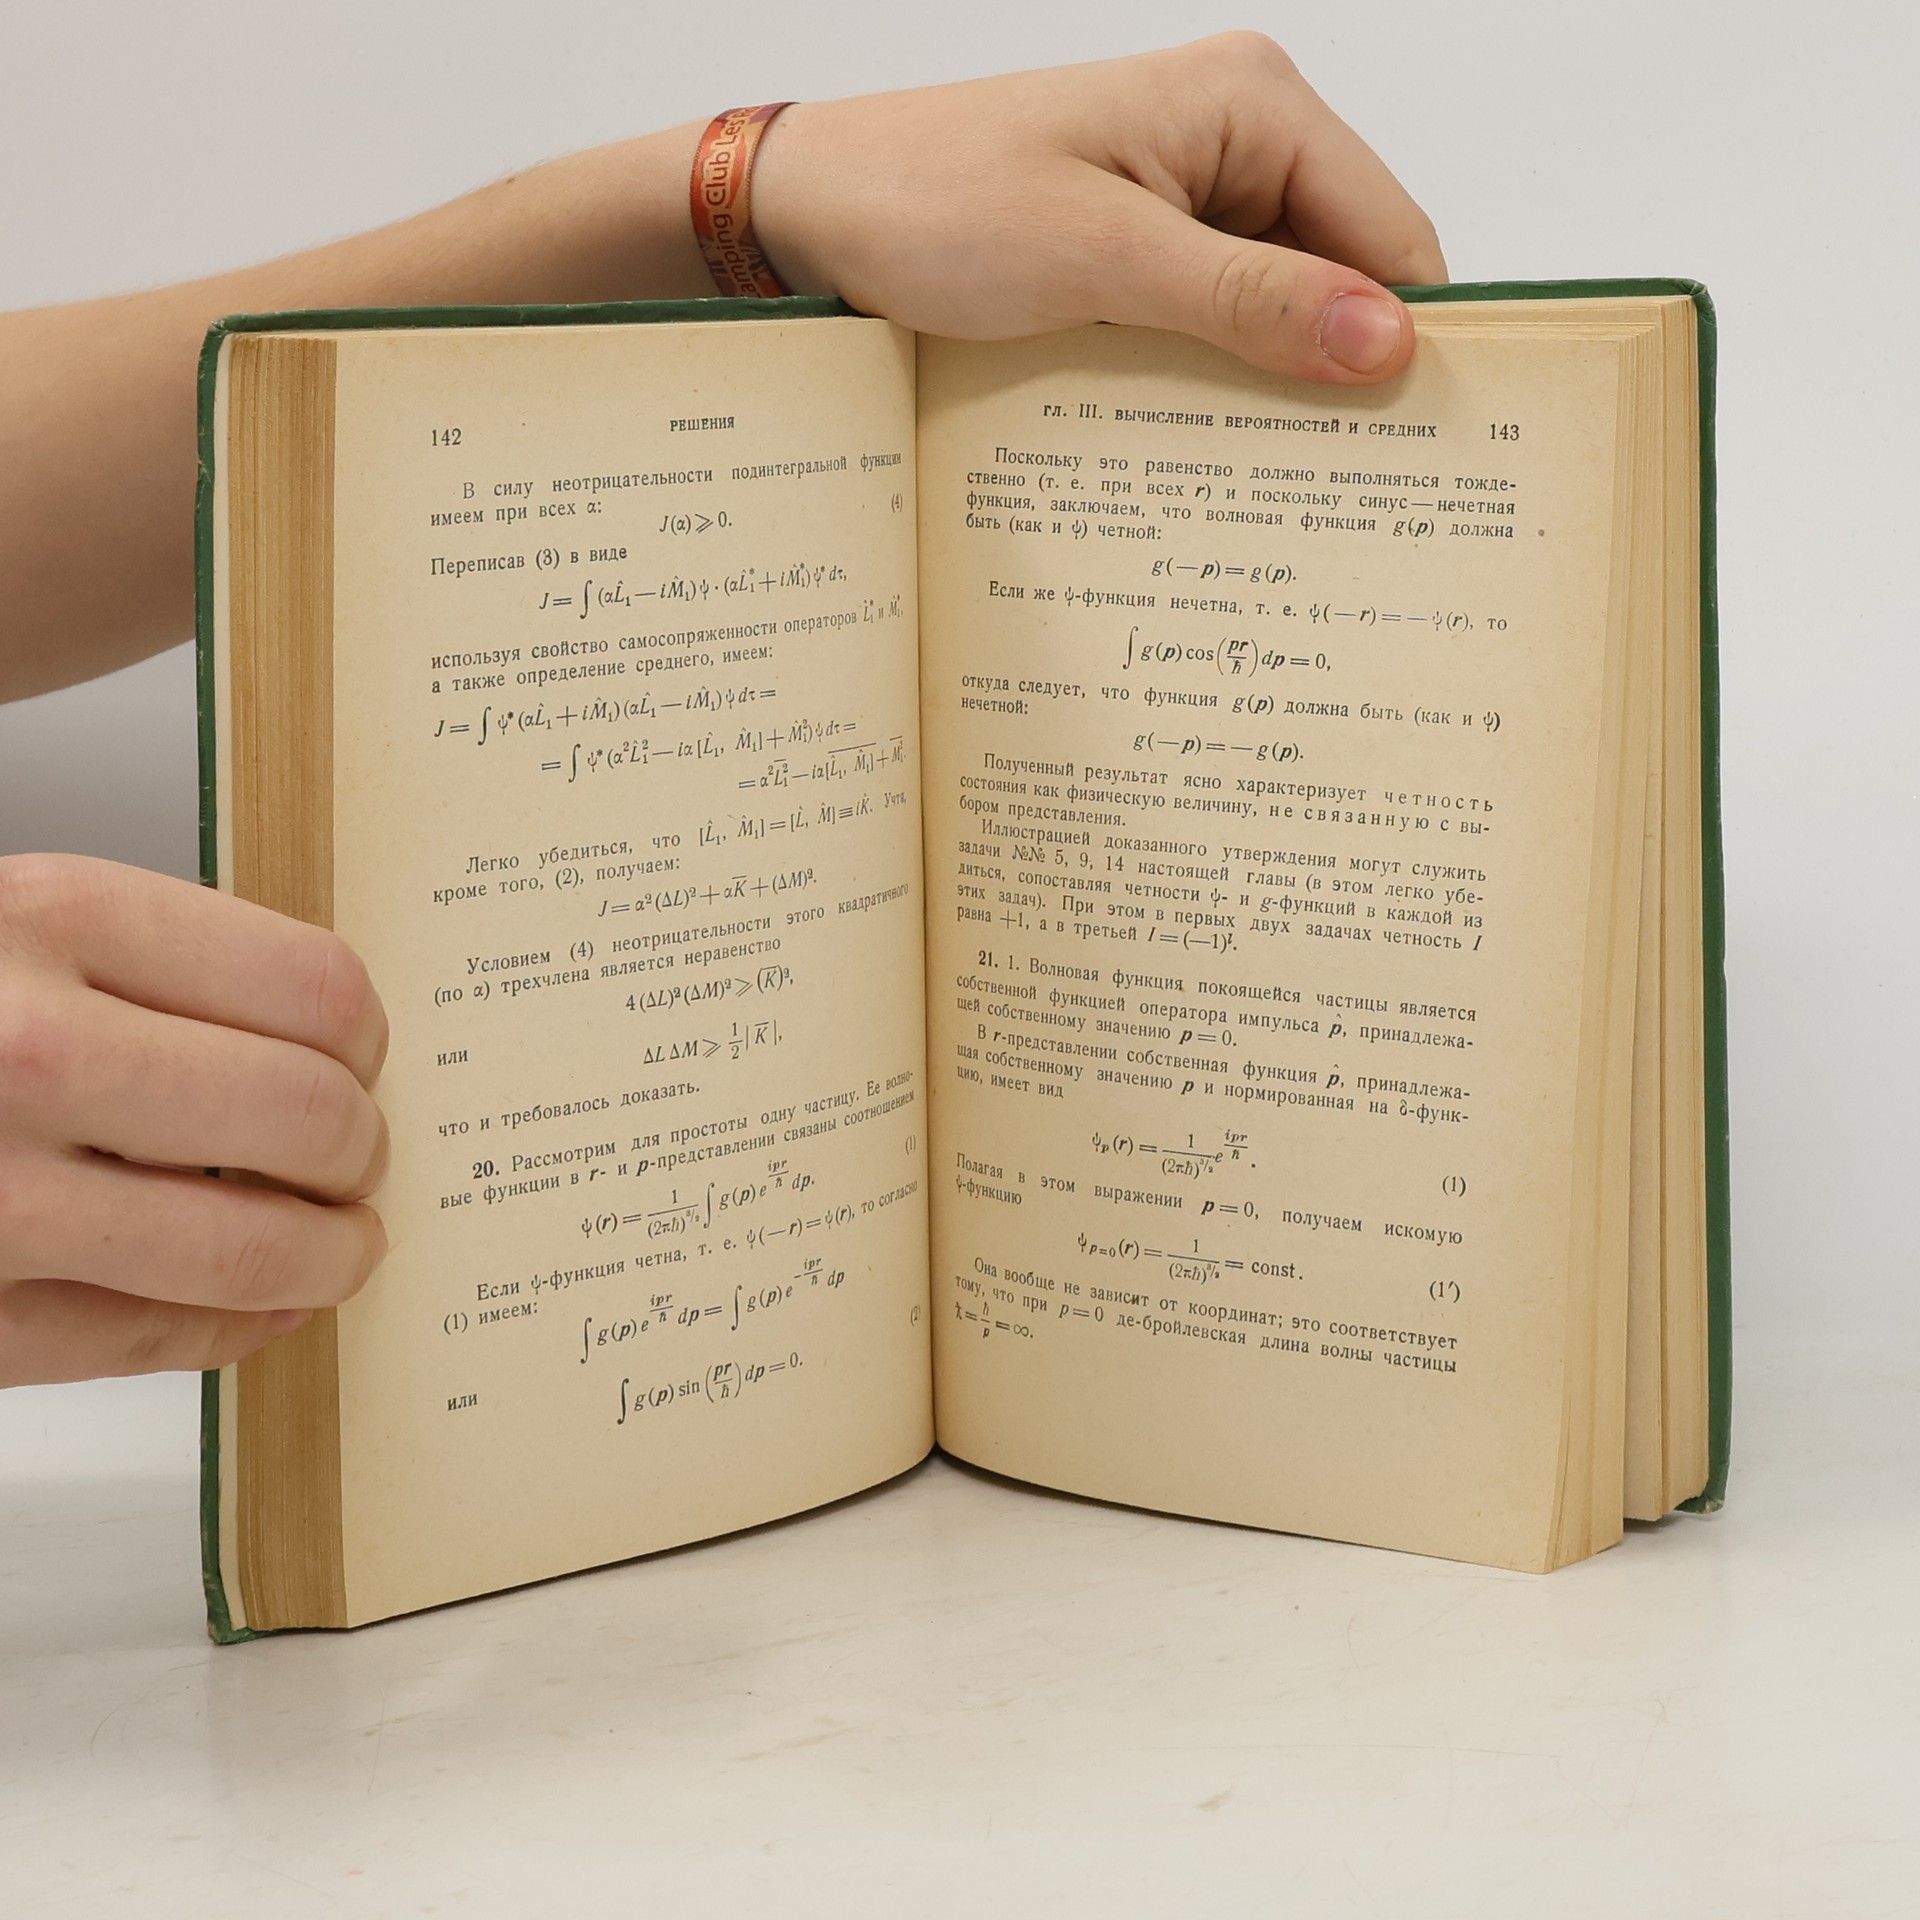 amping Club Les P
142
РЕШЕНИЯ
В силу неотрицательности подинтегральной функции
имеем при всех α:
J(α) ⩾ 0. (4)
Переписав (3) в виде
J = ∫ (αL̂₁ — iM̂₁) ψ · (αL̂₁* + iM̂₁*) ψ* dτ,
используя свойство самосопряженности операторов L̂₁* и M̂₁*,
а также определение среднего, имеем:
J = ∫ ψ* (αL̂₁ + iM̂₁) (αL̂₁ — iM̂₁) ψ dτ =
= ∫ ψ* (α²L̂₁² — iα [L̂₁, M̂₁] + M̂₁²) ψ dτ =
= α² L̅₁² — iα [L̂₁, M̂₁] + M̅₁².
Легко убедиться, что [L̂₁, M̂₁] = [L̂, M̂] ≡ iK̂. Учтя,
кроме того, (2), получаем:
J = α² (ΔL)² + αK̅ + (ΔM)².
Условием (4) неотрицательности этого квадратичного
(по α) трехчлена является неравенство
4 (ΔL)² (ΔM)² ⩾ (K̅)²,
или
ΔL ΔM ⩾ 1/2 | K̅ |,
что и требовалось доказать.
20. Рассмотрим для простоты одну частицу. Ее волно-
вые функции в r- и p-представлении связаны соотношением
ψ (r) = 1/(2πħ)^{3/2} ∫ g (p) e^{ipr/ħ} dp. (1)
Если ψ-функция четна, т. е. ψ (— r) = ψ (r), то согласно
(1) имеем:
∫ g (p) e^{ipr/ħ} dp = ∫ g (p) e^{-ipr/ħ} dp (2)
или
∫ g (p) sin (pr/ħ) dp = 0.
гл. III. ВЫЧИСЛЕНИЕ ВЕРОЯТНОСТЕЙ И СРЕДНИХ
143
Поскольку это равенство должно выполняться тожде-
ственно (т. е. при всех r) и поскольку синус — нечетная
функция, заключаем, что волновая функция g (p) должна
быть (как и ψ) четной:
g (— p) = g (p).
Если же ψ-функция нечетна, т. е. ψ (— r) = — ψ (r), то
∫ g (p) cos (pr/ħ) dp = 0,
откуда следует, что функция g (p) должна быть (как и ψ)
нечетной:
g (— p) = — g (p).
Полученный результат ясно характеризует четность
состояния как физическую величину, не связанную с вы-
бором представления.
Иллюстрацией доказанного утверждения могут служить
задачи №№ 5, 9, 14 настоящей главы (в этом легко убе-
диться, сопоставляя четности ψ- и g-функций в каждой из
этих задач). При этом в первых двух задачах четность I
равна +1, а в третьей I = (—1)^l.
21. 1. Волновая функция покоящейся частицы является
собственной функцией оператора импульса p̂, принадлежа-
щей собственному значению p = 0.
В r-представлении собственная функция p̂, принадлежа-
щая собственному значению p и нормированная на δ-функ-
цию, имеет вид
ψ_p (r) = 1/(2πħ)^{3/2} e^{ipr/ħ}. (1)
Полагая в этом выражении p = 0, получаем искомую
ψ-функцию
ψ_{p=0} (r) = 1/(2πħ)^{3/2} = const. (1′)
Она вообще не зависит от координат; это соответствует
тому, что при p = 0 де-бройлевская длина волны частицы
ƛ = ħ/p = ∞.